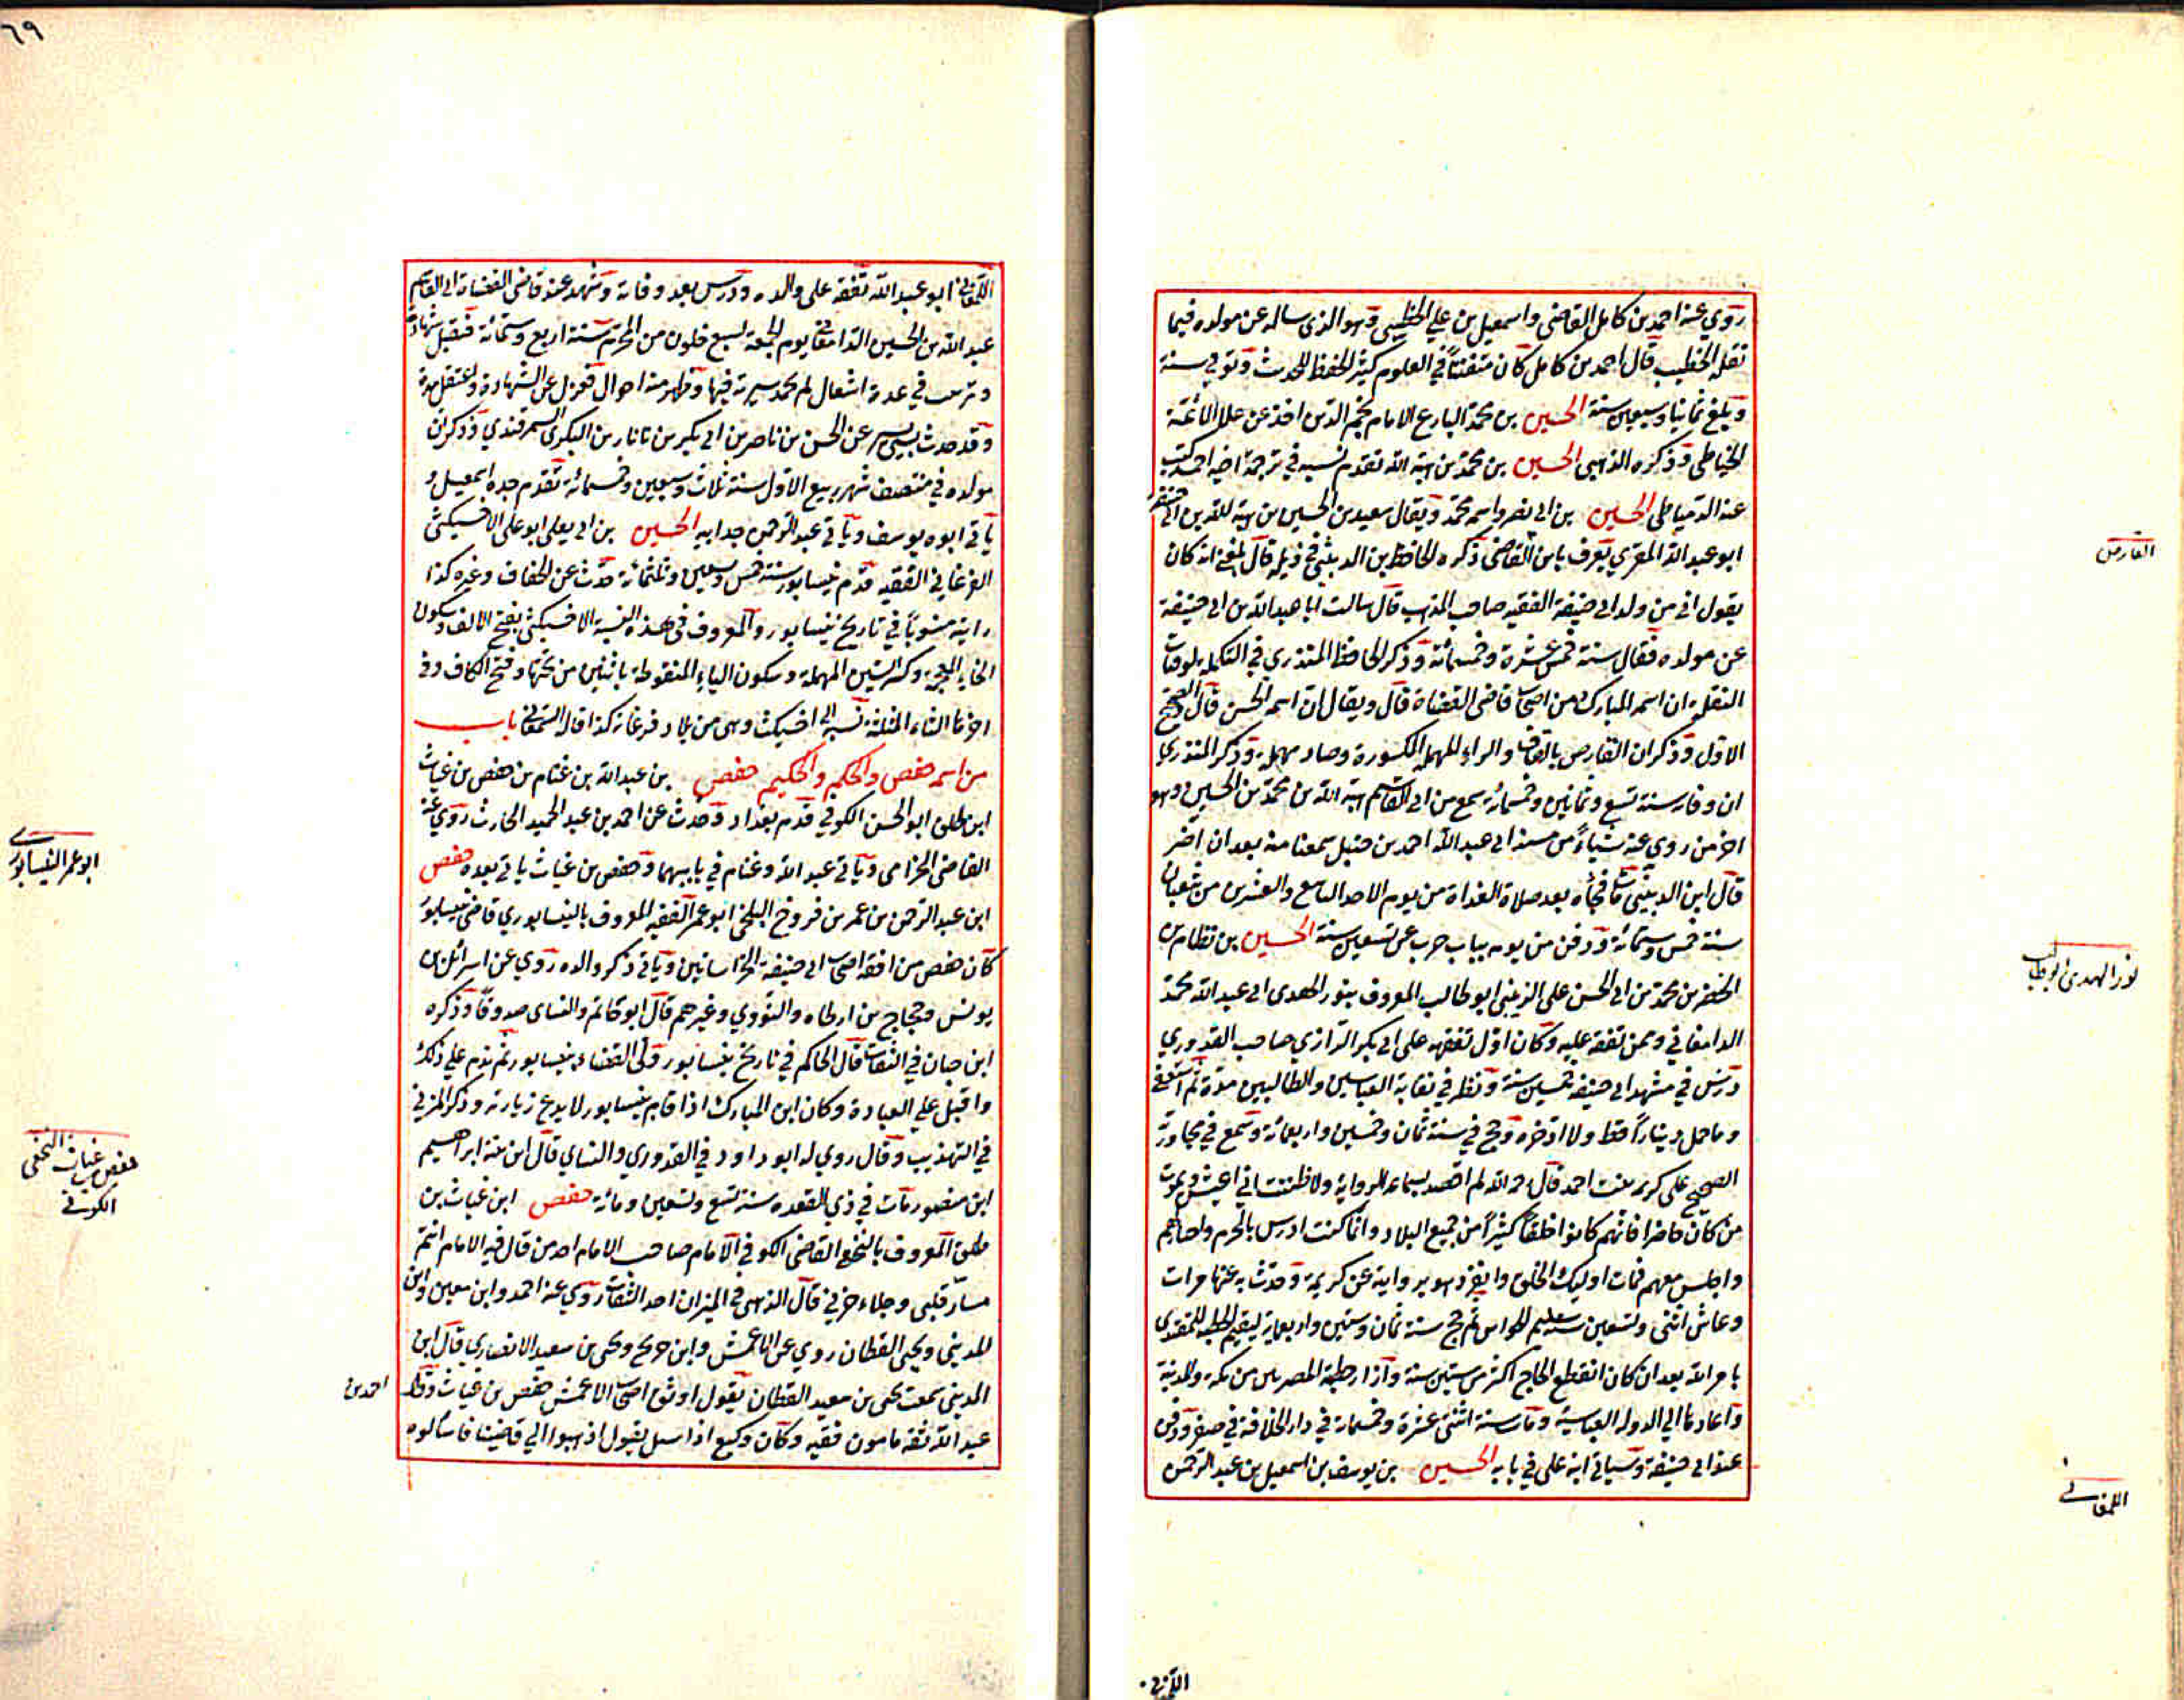 روي عنه احمد بن كامل القاضي واسمعيل بن علي الخطيبي وهو الذي ساله عن مولده فيما
نقله الخطيب قال احمد بن كامل كان متفننًا في العلوم كثير الحفظ للحديث وتوفي سنة
وبلغ ثمانيا وسبعين سنة الحسين بن محمد البارع الامام نجم الدين اخذ عن علاء الائمة
الخياطي وذكره الذهبي الحسين بن محمد بن هبة الله تقدم نسبه في ترجمة اخيه احمد كتب
عنه الدمياطي الحسين بن ابي نصر واسمه محمد ويقال سعيد بن الحسين بن هبة الله بن ابي حنيفة
ابو عبد الله المقري يعرف بابن القاضي ذكره الحافظ بن الدبيثي في ذيله قال بلغني انه كان
يقول اني من ولد ابي حنيفة الفقيه صاحب المذهب قال سالت ابا عبد الله بن ابي حنيفة
عن مولده فقال سنة خمس عشرة وخمسمائة وذكر الحافظ المنذري في التكملة لوفيات
النقلة ان اسمه المبارك من اصحاب قاضي القضاة قال ويقال ان اسمه الحسن قال الصحيح
الاول وذكر ان القارص بالقاف والراء المهملة المكسورة وصاد مهملة وذكر المنذري
ان وفاته سنة تسع وثمانين وخمسمائة سمع من ابي القاسم هبة الله بن محمد بن الحسين وهو
اخر من روي عنه شياءً من مسند ابي عبد الله احمد بن حنبل سمعنا منه بعد ان اضر
قال ابن الدبيثي مات فجأه بعد صلاة الغداة من يوم الاحد التاسع والعشرين من شعبان
سنة خمس وستمائة ودفن من يومه بباب حرب عن تسعين سنة الحسين بن نظام بن
الخضر بن محمد بن ابي الحسن علي الزينبي ابو طالب المعروف بنور الهدى ابي عبد الله محمد
الدامغاني وممن تفقه عليه وكان اول تفقهه على ابي بكر الرازي صاحب القدوري
درس في مشهد ابي حنيفة خمسين سنة ونظر في نقابة العباسيين والطالبيين مدة ثم استعفى
وما حمل دينارًا قط ولا ادخره وحج في سنة ثمان وخمسين واربعمائة وسمع في مجاورته
الصحيح على كريمة بنت احمد قال رحمه الله لم اقصد بسماعه الرواية ولا ظننت اني اعيش ويموت
من كان حاضرا فانهم كانوا خلقًا كثيرًا من جميع البلاد وانما كنت ادرس بالحرم واصاحبهم
واجلس معهم فمات اوليك الخلق وانفرد هو برواية عن كريمة وحدث به عنها مرات
وعاش اثنى وتسعين سنة سليم الحواس ثم حج سنة ثمان وستين واربعماية ليقيم الخطبة للمقتدي
بامر الله بعد ان كان انقطع الحاج اكثر من ستين سنة وازار خطبة المصريين من مكة والمدينة
واعادها الي الدولة العباسية ومات سنة اثنتى عشرة وخمسمائة في دار الخلافة في صفر ودفن
عند ابي حنيفة وسياتي ابنه علي في بابه الحسين بن يوسف بن اسمعيل بن عبد الرحمن
القارص
نور الهدى ابو طالب
اللمغاني
اللمغاني
٦٩
اللمغاني ابو عبد الله تفقه على والده ودرس بعد وفاته وشهد عند قاضي القضاة ابي القاسم
عبد الله بن الحسين الدامغاني يوم الجمعة لسبع خلون من المحرم سنة اربع وستمائة فقبل شهادته
وترتب في عدة اشغال لم تحمد سيرته فيها وظهر منه احوال فعزل عن الشهادة واعتقل مدة
وقد حدث بيسير عن الحسن بن ناصر بن ابي بكر بن باناز بن البكري السمرقندي وذكر ان
مولده في منتصف شهر ربيع الاول سنة ثلاث وسبعين وخمسمائة تقدم جده اسمعيل و
ياتي ابوه يوسف وياتي عبد الرحمن جد ابيه الحسين بن ابي يعلى ابو علي الاخسيكثي
الفرغاني الفقيه قدم نيسابور سنة خمس وسبعين وثلثمائة حدث عن الخفاف وغيره كذا
رايته منسوبًا في تاريخ نيسابور والمعروف في هذه النسبة الاخسيكثي بفتح الالف وسكون
الخاء المعجمة وكسر السين المهملة وسكون الياء المنقوطة باثنين من تحتها وفتح الكاف وفي
اخرها الثاء المثلثة نسبة الى اخسيكث وهي من بلاد فرغانة كذا قال السمعاني باب
من اسمه حفص والحكم والحكيم حفص بن عبد الله بن غنام بن حفص بن غياث
ابن طلق ابو الحسن الكوفي قدم بغداد وحدث عن احمد بن عبد الحميد الحارث روي عنه
القاضي الجزامي وياتي عبد الله وغنام في بابيهما وحفص بن غياث ياتي بعده حفص
ابن عبد الرحمن بن عمر بن فروخ البلخي ابو عمر الفقيه المعروف بالنيسابوري قاضي نيسابور
كان حفص من افقه اصحاب ابي حنيفة الخراسانيين وياتي ذكر والده روي عن اسرائل بن
يونس وحجاج بن ارطاه والثوري وغيرهم قال ابو حاتم والنساي صدوقًا وذكره
ابن حبان في الثقات قال الحاكم في تاريخ نيسابور ولي القضاء بنيسابور ثم ندم علي ذلك
واقبل علي العبادة وكان ابن المبارك اذا قام بنيسابور لا يدع زيارته وذكر المزني
في التهذيب وقال روي له ابو داود في القدوري والنساي قال ابن بنته ابراهيم
ابن منصور مات في ذي القعده سنة تسع وتسعين ومائة حفص ابن غياث بن
طلق المعروف بالنخعي القاضي الكوفي الامام صاحب الامام احد من قال فيه الامام انتم
مسار قلبي وجلاء حزني قال الذهبي في الميزان احد الثقات روي عنه احمد وابن معين وابن
المديني ويحيى القطان روي عن الاعمش وابن جريج ويحيى بن سعيد الانصاري قال ابن
المديني سمعت يحيى بن سعيد القطان يقول اوثق اصحاب الاعمش حفص بن غياث وقال احمد بن
عبد الله ثقة مامون فقيه وكان وكيع اذا سيل يقول اذهبوا الي قاضينا فاسألوه
ابو عمر النيسابوري
حفص بن غياث النخعي
الكوفي